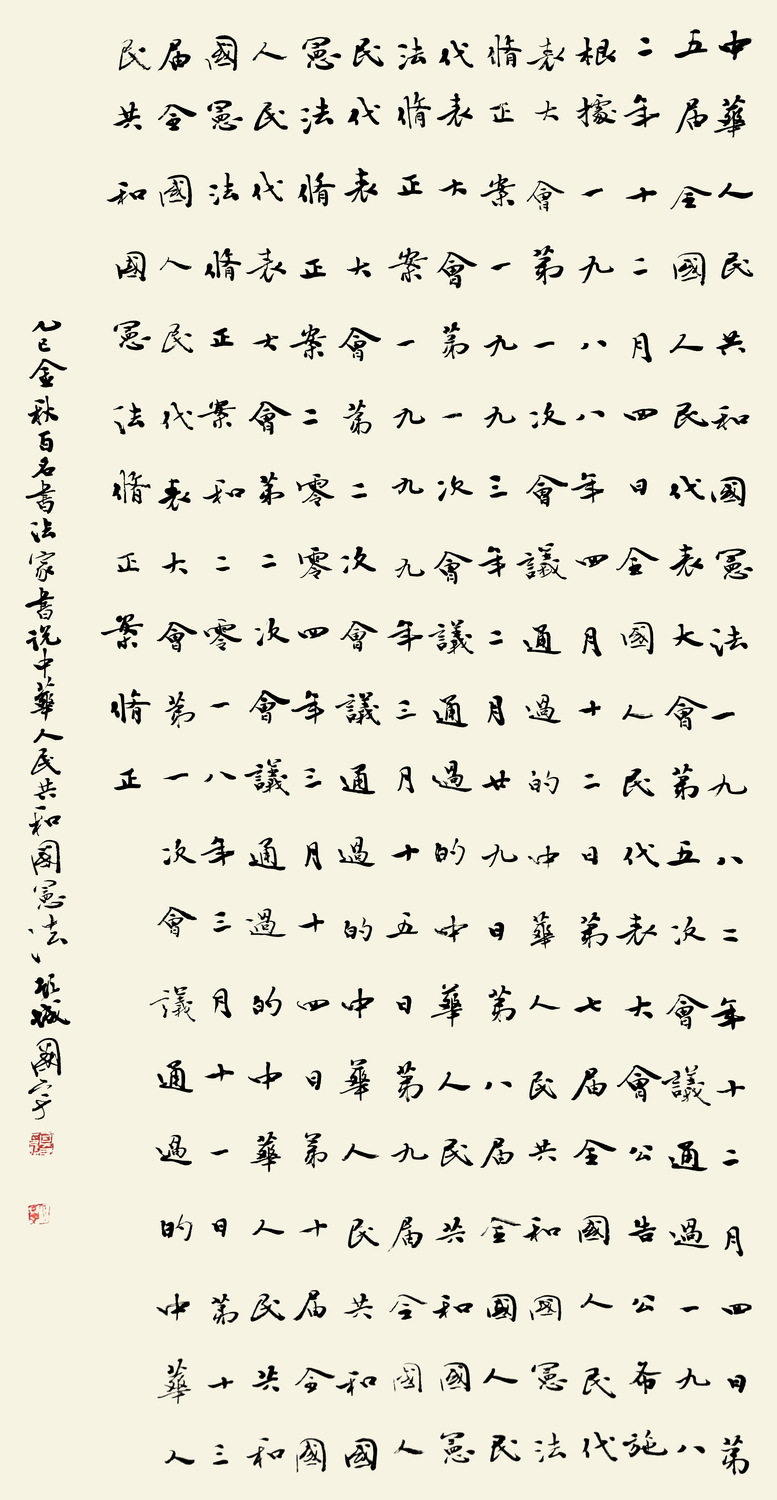 中華人民共和國憲法一九八二年十二月四日第
五届全國人民代表大會第五次會議通過一九八
二年十二月四日全國人民代表大會公告公布施
根據一九八八年四月十二日第七届全國人民代
表大會第一次會議通過的中華人民共和國憲法
脩正案一九九三年二月廿九日第八届全國人民
代表大會第一次會議通過的中華人民共和國憲
法脩正案一九九九年三月十五日第九届全國人
民代表大會第二次會議通過的中華人民共和國
憲法脩正案二零零四年三月十四日第十届全國
人民代表大會第二次會議通過的中華人民共和
國憲法脩正案和二零一八年三月十一日第十三
届全國人民代表大會第一次會議通過的中華人
民共和國憲法脩正案脩正
乙巳金秋百名書法家書説中華人民共和國憲法城國宇